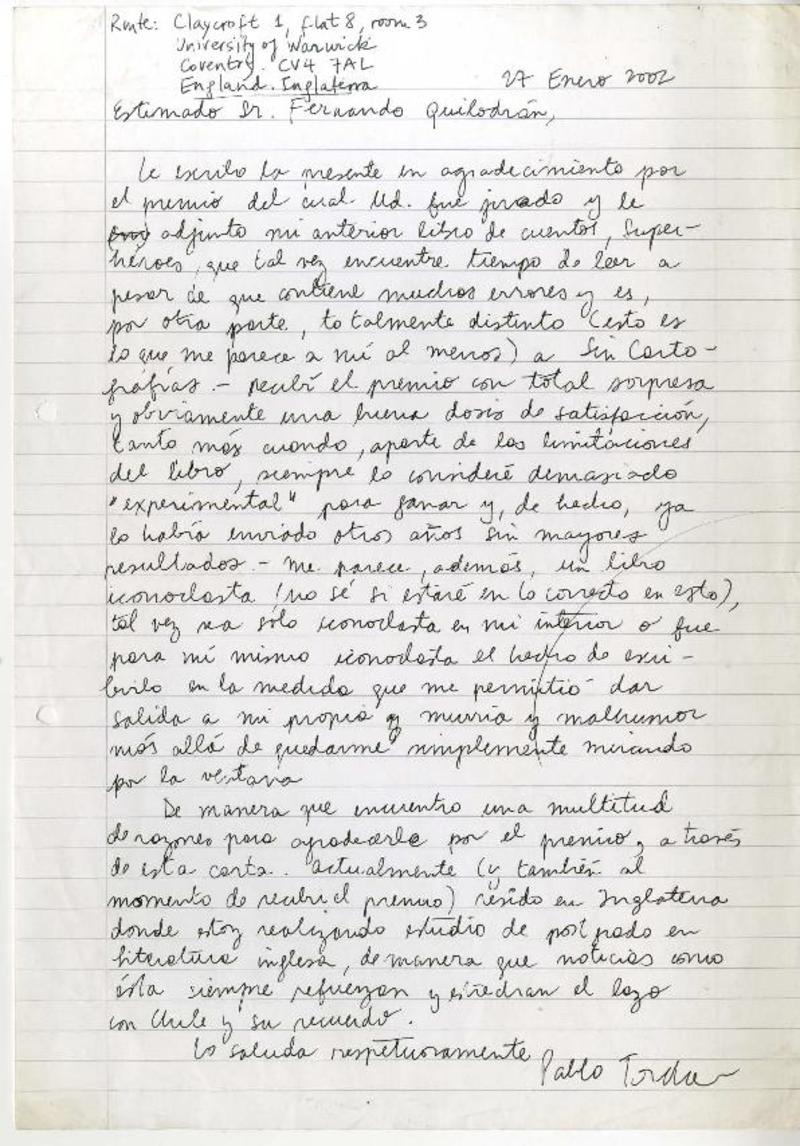 Rmte: Claycroft 1, flat 8, room 3
University of Warwick
Coventry. CV4 7AL
England. Inglaterra
27 Enero 2002
Estimado Sr. Fernando Quilodrán,
Le escribo la presente en agradecimiento por
el premio del cual Ud. fue jurado y le
adjunto mi anterior libro de cuentos, Super-
héroes, que tal vez encuentre tiempo de leer a
pesar de que contiene muchos errores y es,
por otra parte, totalmente distinto (esto es
lo que me parece a mí al menos) a Sin Carto-
grafías.- Recibí el premio con total sorpresa
y obviamente una buena dosis de satisfacción,
tanto más cuando, aparte de las limitaciones
del libro, siempre lo consideré demasiado
"experimental" para ganar y, de hecho, ya
lo había enviado otros años sin mayores
resultados.- Me parece, además, un libro
iconoclasta (no sé si estaré en lo correcto en esto),
tal vez sea sólo iconoclasta en mi interior o fue
para mí mismo iconoclasta el hecho de escri-
birlo en la medida que me permitió dar
salida a mi propia murria y malhumor
más allá de quedarme simplemente mirando
por la ventana
De manera que encuentro una multitud
de razones para agradecerle por el premio, a través
de esta carta. Actualmente (y también al
momento de recibir el premio) resido en Inglaterra
donde estoy realizando estudio de postgrado en
literatura inglesa, de manera que noticias como
ésta siempre refuerzan y estrechan el lazo
con Chile y su recuerdo.
Lo saluda respetuosamente
Pablo Torche